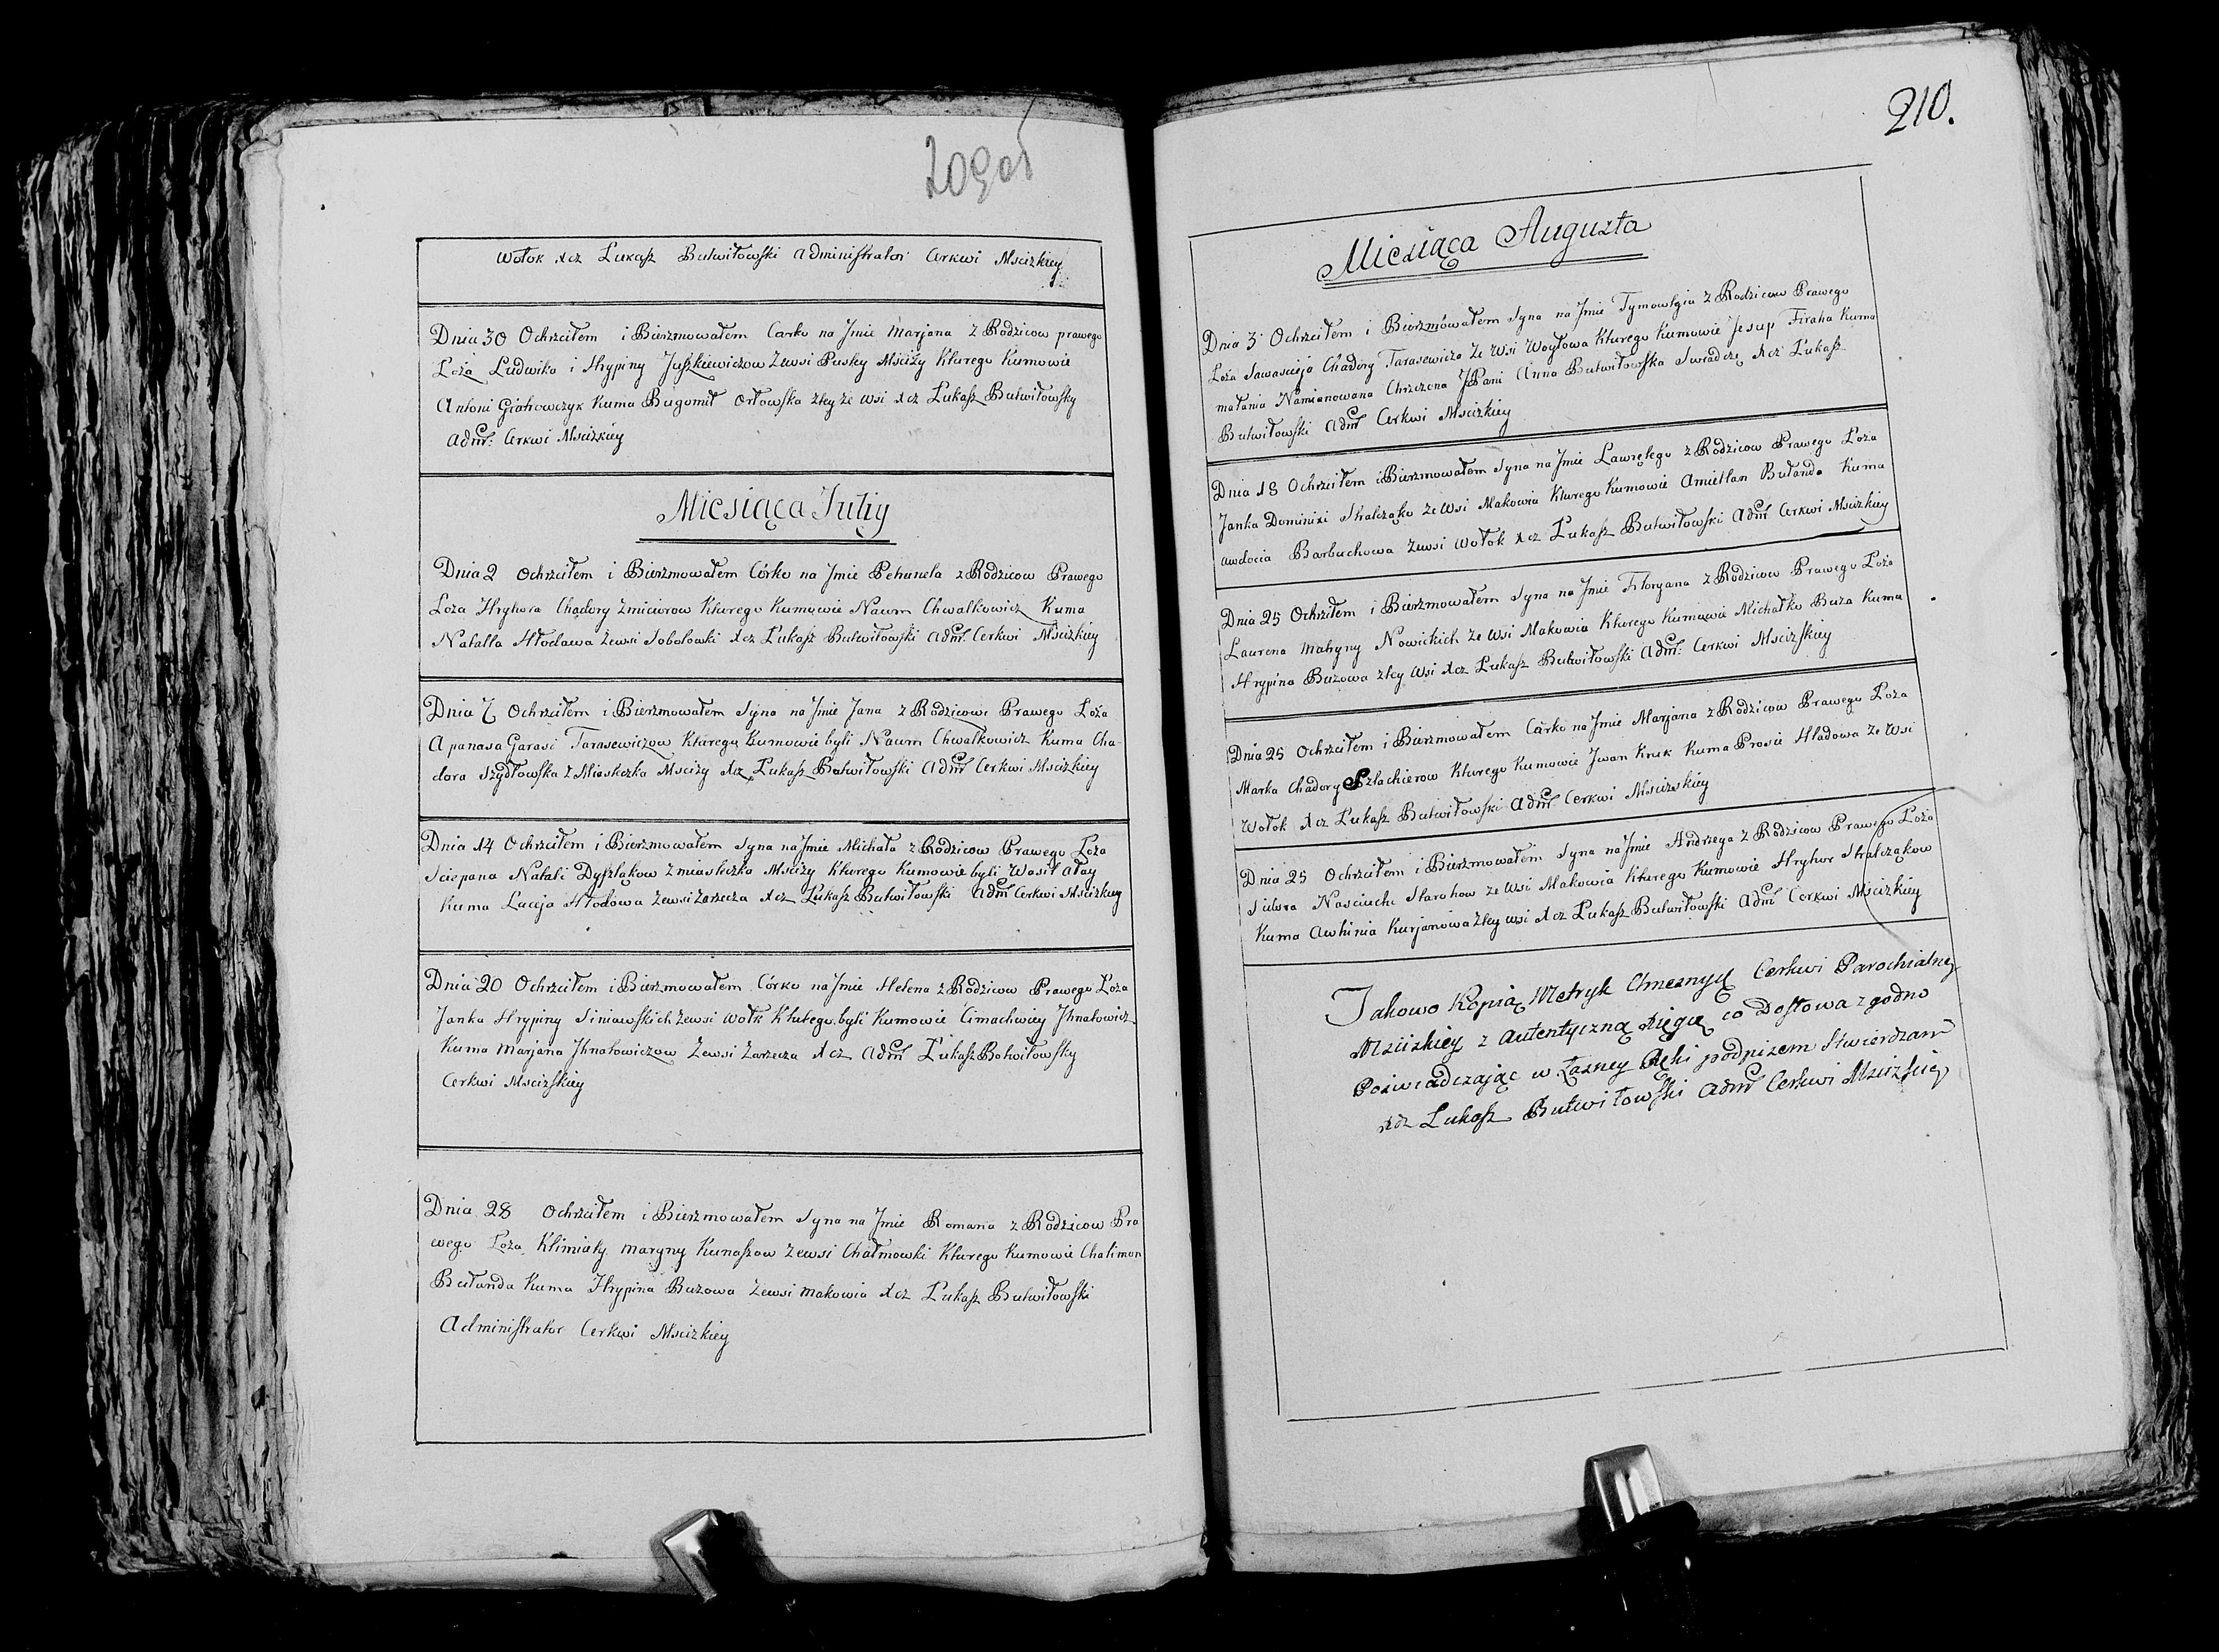 209об
Wołok xcz Łukasz Butwiłowski Administrator Cerkwi Mscizkiey
Dnia 30 Ochrzciłem i Bierzmowałem Carko na Jmie Marjana z Rodzicow prawego
Łoża Ludwika i Hrypiny Juszkiewiczow Zewsi Pusley Mściży Kturego Kumowie
Antoni Kuma Bugomił Orłowska zteyże wsi xcz Łukasz Butwiłowsky
Adm: Cerkwi Mscizkiey
Miesiąca Julÿ
Dnia 2 Ochrzciłem i Bierzmowałem Córko na Jmie Petrunela z Rodzicow Prawego
Łoża Hryhora Chadory Zmiciorow Kturego Kumowie Naum Chwalkowicz Kuma
Natalla Hłodawa Zewsi Sobolowki xcz Łukasz Butwiłowski Adm Cerkwi Mścizkiey
Dnia 7 Ochrzciłem i Bierzmowałem Syna na Jmie Jana z Rodzicow Prawego Łoża
Apanasa Garasi Tarasewiczow Kturego Kumowie byli Naum Chwalkowicz Kuma Cha
dora Szydłowska z Miasteczka Msciży xcz Łukasz Butwiłowski Adm Cerkwi Mscizkiey
Dnia 14 Ochrzciłem i Bierzmowałem Syna na Jmie Michała z Rodzicow Prawego Łoża
Sciepana Natali Dyszląkow z miasteczka Msciży Kturego Kumowie byli Wasil Ałay
Kuma Łucyja Hłodowa Zewsi Zarzecza xcz Łukasz Butwiłowski Adm Cerkwi Mscizkiey
Dnia 20 Ochrzciłem i Bierzmowałem Córko na Jmie Helena z Rodzicow Prawego Łoża
Janka Hrypiny Siniawskich Zewsi Wołk Kturego byli Kumowie Cimachwiey Jhnatowicz
Kuma Marjana Jhnatowiczow Zewsi Zarzecza xcz Adm Łukasz Butwiłowsky
Cerkwi Mscizskiey
Dnia 28 Ochrzciłem i Bierzmowałem Syna na Jmie Romana z Rodzicow Pra
wego Łoża Klimiaty Maryny Kunaszow Zewsi Chałmowki Kturego Kumowie Chalimon
Bułanda Kuma Hrypina Buzowa Zewsi Makowia xcz Łukasz Butwiłowski
Administrator Cerkwi Mscizkiey
210.
Miesiąca Augusta
Dnia 3 Ochrzciłem i Bierzmowałem Syna na Jmie z Rodzicow Prawego
Łoża Sawascieja Chadory Tarasewicza Ze Wsi Woytowa Kturego Kumowie Jesup Firaha Kuma
matania Namianowana Chrzczona JPani Anna Butwiłowska Swiadczę xcz Łukasz
Butwiłowski Adm Cerkwi Mscizkiey
Dnia 18 Ochrzciłem i Bierzmowałem Syna na Jmie z Rodzicow Prawego Łoża
Janka Dominixi Strałcząko ze Wsi Makowia Kturego Kumowie Amiellan Bułanda Kuma
Awdocia Barbuchowa Zewsi Wołok xcz Łukasz Butwiłowski Adm Cerkwi Mscizkiey
Dnia 25 Ochrzciłem i Bierzmowałem Syna na Jmie Floryana z Rodzicow Prawego Łoża
Laurena Matryny Nowickich ze Wsi Makowia Kturego Kumowie Michałko Buza Kuma
Hrypina Buzowa ztey Wsi xcz Łukasz Butwiłowski Adm: Cerkwi Mscizskiey
Dnia 25 Ochrzciłem i Bierzmowałem Carko na Jmie Marjana z Rodzicow Prawego Łoża
Marka Chadory Szłachierow Kturego Kumowie Jwan Kruk Kuma Prosie Hładowa Ze Wsi
Wołok xcz Łukasz Butwiłowski Adm Cerkwi Mscizskiey
Dnia 25 Ochrzciłem i Bierzmowałem Syna na Jmie Andrzega z Rodzicow Prawego Łoża
Sidora Nasciuchi Starohow ze Wsi Makowia Kturego Kumowie Hryhor Strałcząkow
Kuma Awhinia Kurjanowa ztey wsi xcz Łukasz Butwiłowski Adm Cerkwi Mscizkiey
Jakowo Kopią Metryk Cerkwi Parochialney
Mscizkiey z Autentyczną Xięgą co Do słowa zgodno
Poświadczając w łasney Ręki podpisem stwierdzam
xcz Łukasz Butwiłowski Adm Cerkwi Mscizkiey